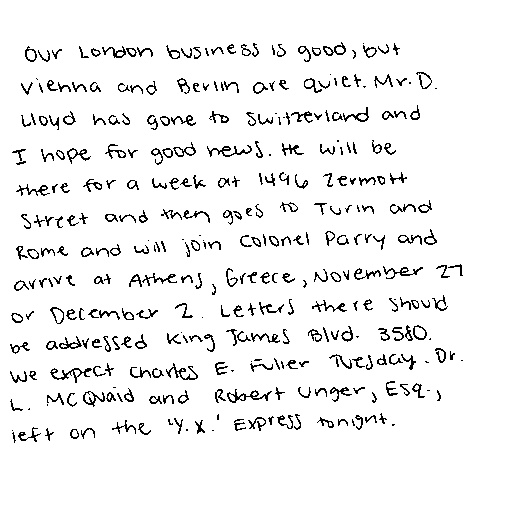 Our London business is good, but
Vienna and Berlin are quiet. Mr. D.
Lloyd has gone to Switzerland and
I hope for good news. He will be
there for a week at 1496 Zermott
Street and then goes to Turin and
Rome and will join Colonel Parry and
arrive at Athens, Greece, November 27
or December 2. Letters there should
be addressed King James Blvd. 3580.
We expect Charles E. Fuller Tuesday. Dr.
L. McQuaid and Robert Unger, Esq.,
left on the 'Y.X.' Express tonight.